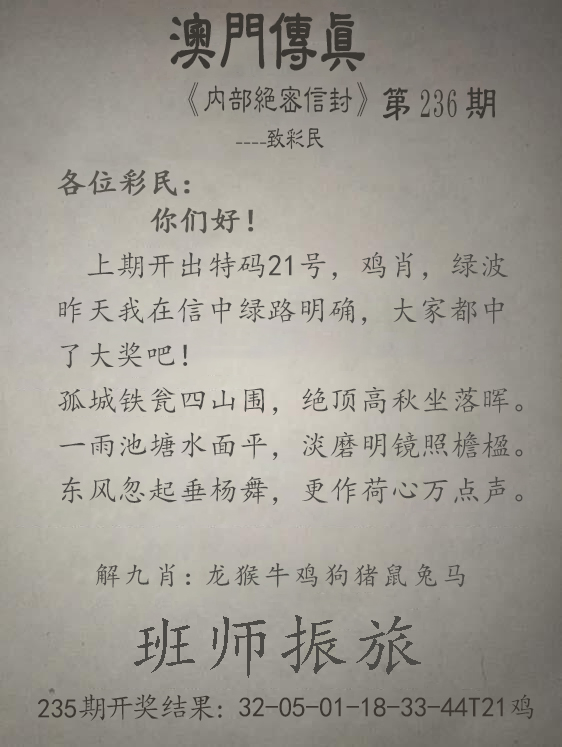 澳門傳眞
《内部絕密信封》第236期
----致彩民
各位彩民：
你们好！
上期开出特码21号，鸡肖，绿波
昨天我在信中绿路明确，大家都中
了大奖吧！
孤城铁瓮四山围，绝顶高秋坐落晖。
一雨池塘水面平，淡磨明镜照檐楹。
东风忽起垂杨舞，更作荷心万点声。
解九肖：龙猴牛鸡狗猪鼠兔马
班师振旅
235期开奖结果：32-05-01-18-33-44T21鸡